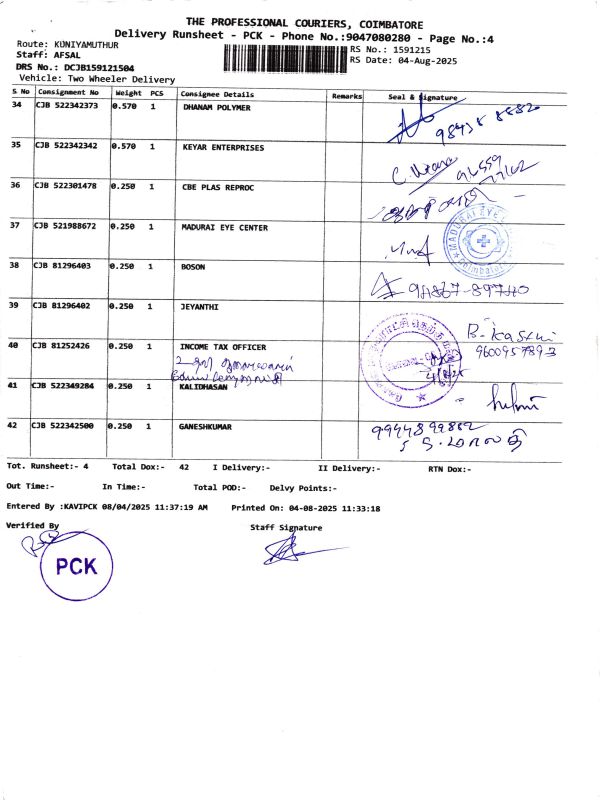 THE PROFESSIONAL COURIERS, COIMBATORE
Delivery Runsheet - PCK - Phone No.:9047080280 - Page No.:4
Route: KUNIYAMUTHUR
RS No.: 1591215
Staff: AFSAL
RS Date: 04-Aug-2025
DRS No.: DCJB159121504
Vehicle: Two Wheeler Delivery
S No Consignment No Weight PCS Consignee Details Remarks Seal & Signature
34 CJB 522342373 0.570 1 DHANAM POLYMER
35 CJB 522342342 0.570 1 KEYAR ENTERPRISES
36 CJB 522301478 0.250 1 CBE PLAS REPROC
37 CJB 521988672 0.250 1 MADURAI EYE CENTER
MADURAI EYE
Coimbatore
38 CJB 81296403 0.250 1 BOSON
39 CJB 81296402 0.250 1 JEYANTHI
9600957893
40 CJB 81252426 0.250 1 INCOME TAX OFFICER
41 CJB 522349284 0.250 1 KALIDHASAN
42 CJB 522342500 0.250 1 GANESHKUMAR
Tot. Runsheet:- 4 Total Dox:- 42 I Delivery:- II Delivery:- RTN Dox:-
Out Time:- In Time:- Total POD:- Delvy Points:-
Entered By :KAVIPCK 08/04/2025 11:37:19 AM Printed On: 04-08-2025 11:33:18
Verified By Staff Signature
PCK